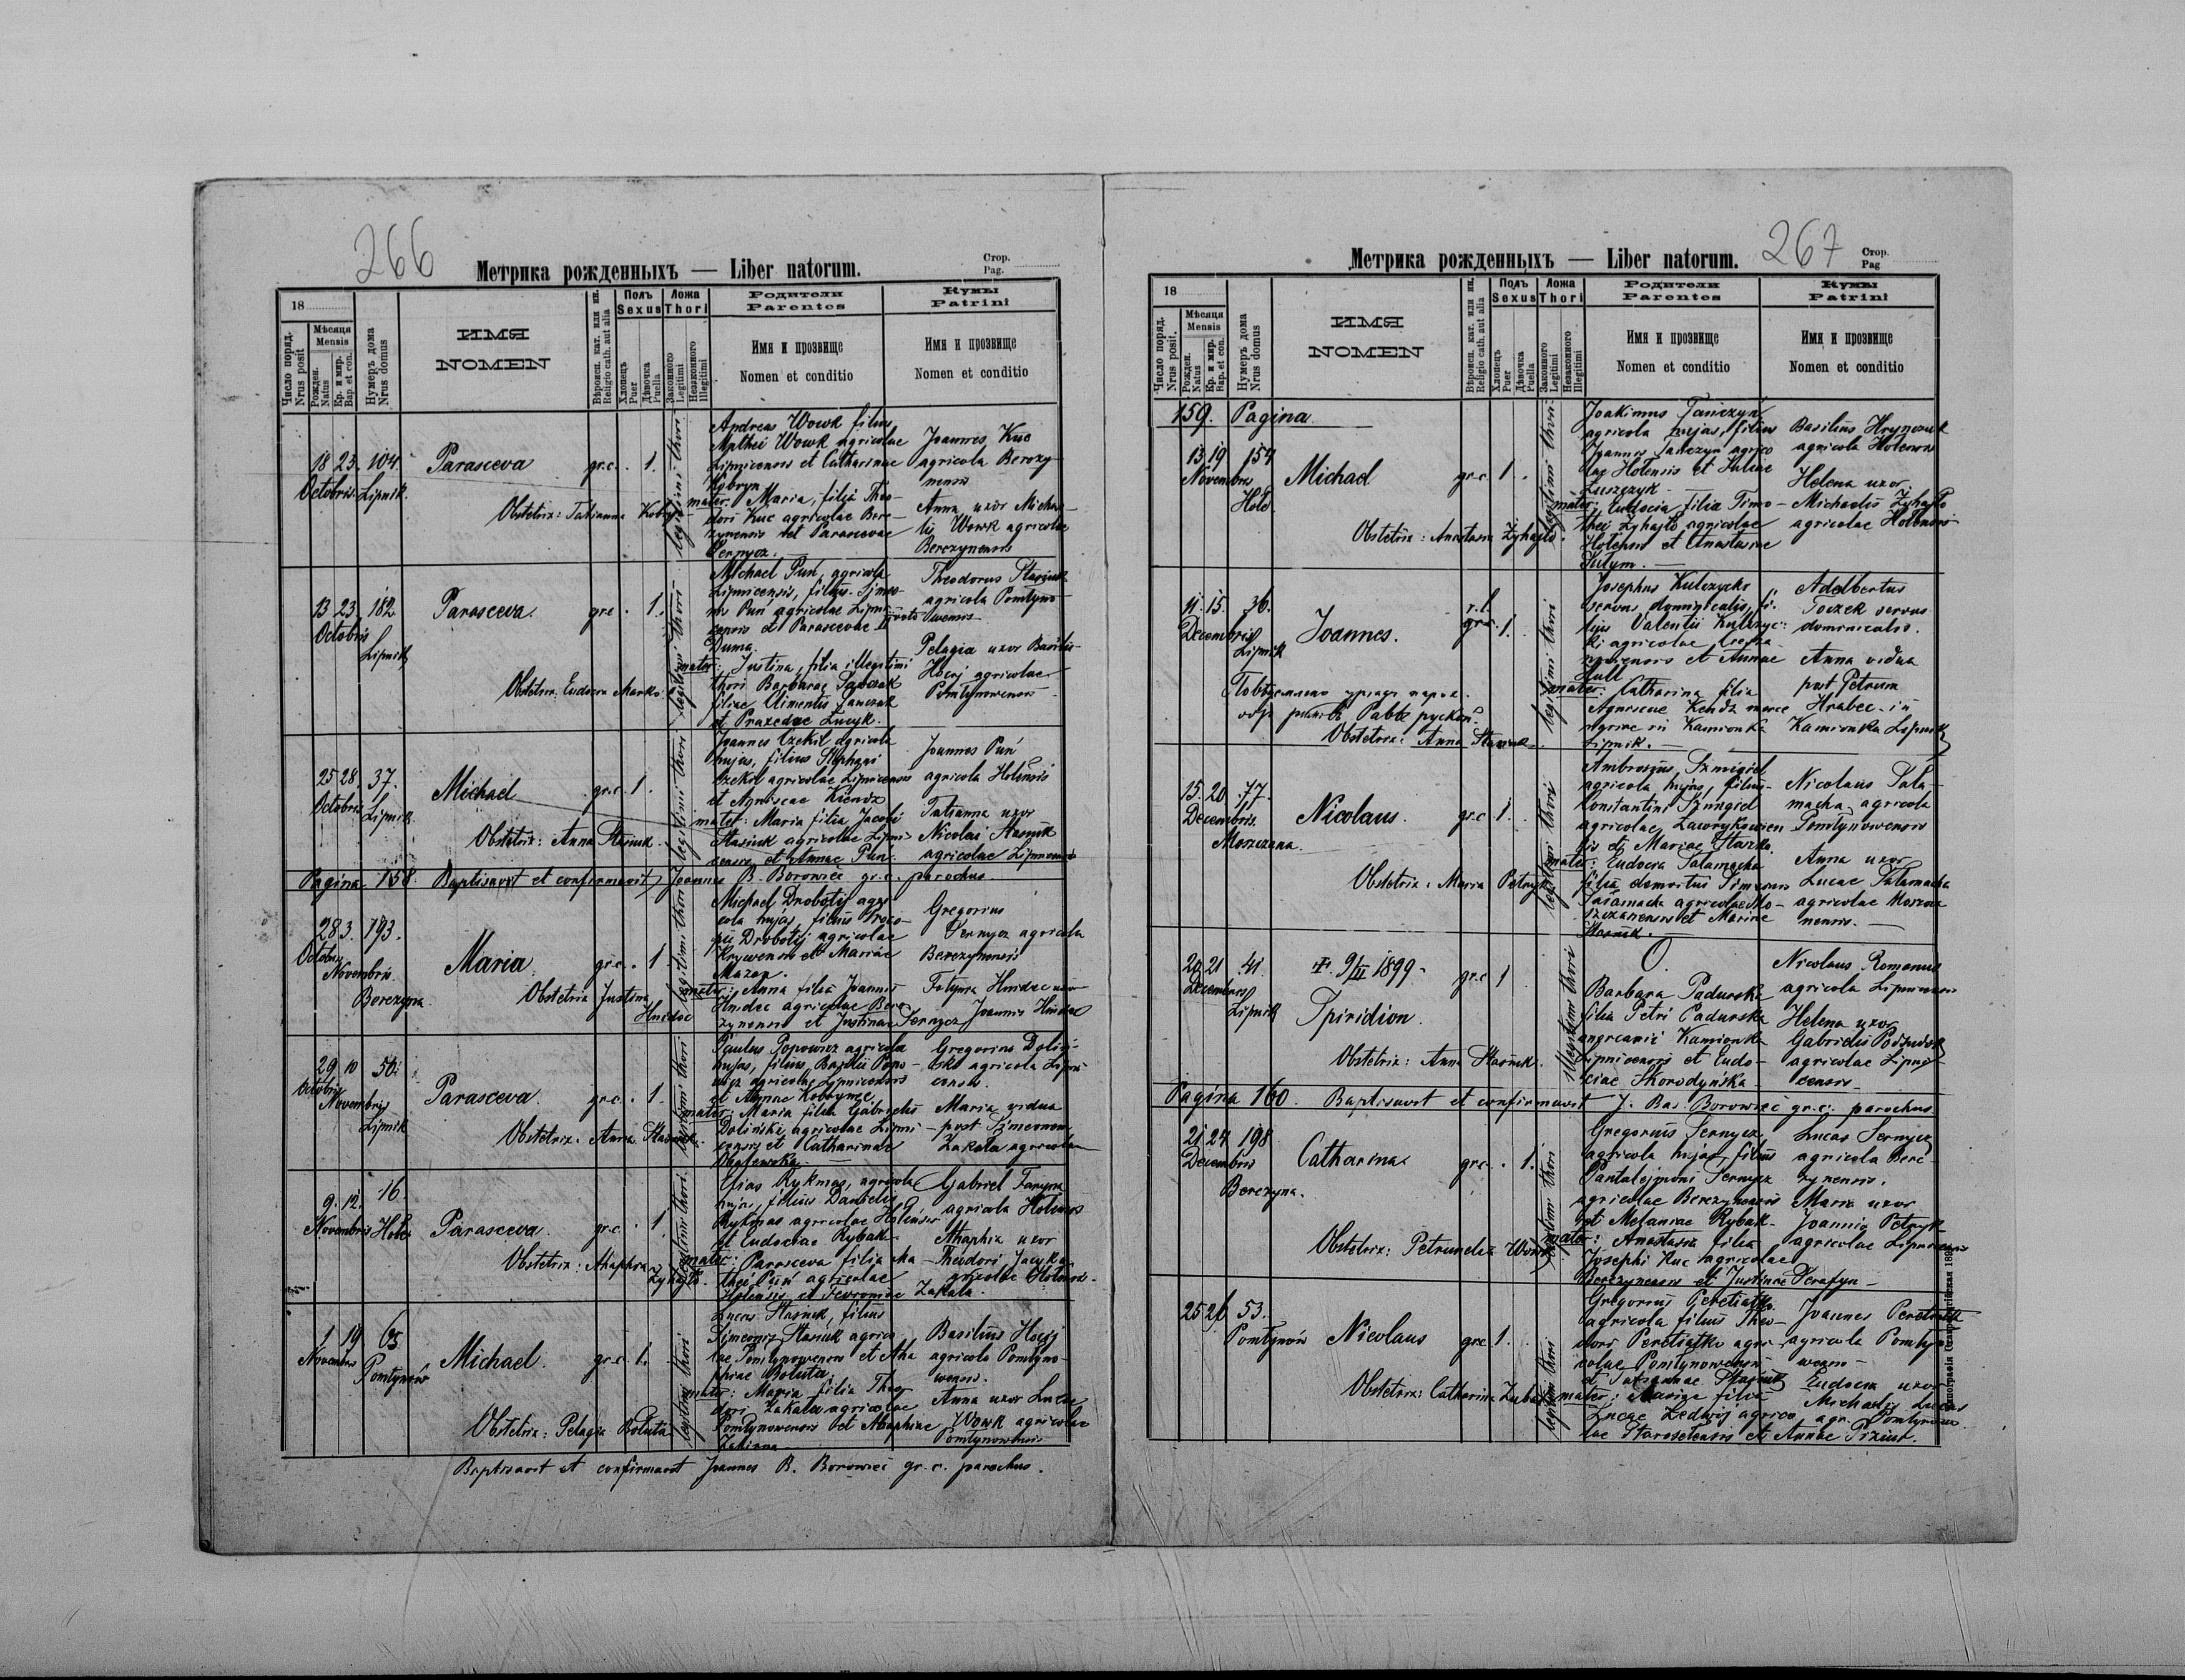 266
Метрика рожденныхъ — Liber natorum.
Стор.
Pag.
18
Число поряд.
Nrus posit
Мѣсяця
Mensis
Рожден.
Natus
Кр. и мир.
Bap. et con.
Нумеръ дома
Nrus domus
ИМЯ
NOMEN
Вѣроисп. кат. или ин.
Religio cath. aut alia
Полъ
Sexus
Хлопець
Puer
Дѣвочка
Puella
Ложа
Thori
Законного
Legitimi
Незаконного
Illegitimi
Родители
Parentes
Имя и прозвище
Nomen et conditio
Кумы
Patrini
Имя и прозвище
Nomen et conditio
18 23. 104.
Octobris Lipnik.
Parasceva
gr.c. . 1.
legitimi thori
Andreas Wowk filius
Mathei Wowk agricolae
Lipnicensis et Catharinae
Kobryn
mater: Maria, filia Theo-
dori Kuc agricolae Bere-
zynensis et Parascevae
Sernycz.
Joannes Kuc
agricola Berezy-
nensis
Anna uxor Michae-
lis Wowk agricolae
Berezynensis
Obstetrix: Tatianna Kobryn
13 23. 182
Octobris
Lipnik
Parasceva.
gr.c. . 1.
legitimi thori
Michael Pun, agricola
Lipnicensis, filius Simeo-
nis Pun agricolae Lipni-
censis et Parascevae
Duma.
mater: Justina, filia illegitimi
thori Barbarae Sawczak
filiae Climentis Sawczak
et Praxedae Lucyk.
Theodorus Stasiuk
agricola Pomtyno-
wensis
Pelagia uxor Basilii
Hocij agricolae
Pomtynowensis
Obstetrix: Eudocia Marko
25 28. 37.
Octobris Lipnik.
Michael
gr.c. 1.
legitimi thori
Joannes Czekil agricola
hujas, filius Stephani
Czekil agricolae Lipnicensis
et Agniscae Kiendz
mater: Maria filia Jacobi
Stasiuk agricolae Lipni-
censis et Annae Pun.
Joannes Pun
agricola Holensis
Tatianna uxor
Nicolai Stasiuk
agricolae Lipnicensis
Obstetrix: Anna Stasiuk.
Pagina 158. Baptisavit et confirmavit Joannes B. Borowiec gr. c. parochus.
28 3. 193.
Octobris
Novembris.
Berezyna.
Maria
gr.c. . 1.
legitimi thori
Michael Drobotij agri-
cola hujas, filius Proco-
pii Drobotij agricolae
Krywensis et Mariae
Mazur.
mater: Anna filia Joannis
Hnidec agricolae Bere-
zynensis et Justinae Sernycz
Gregorius
Sernycz agricola
Berezynensis
Fotyna Hnidec uxor
Joannis Hnidec
Obstetrix Justina
Hnidec
29 10 50.
Octobris
Novembris
Lipnik
Parasceva.
gr.c. . 1.
legitimi thori
Paulus Popowicz agricola
hujas, filius Basilii Popo-
wicz agricolae Lipnicensis
et Annae Kobryn
mater: Maria filia Gabrielis
Dolinski agricolae Lipni-
censis et Catharinae
Gregorius Dolin-
ski agricola Lipni-
censis.
Maria vidua
post Simeonem
Zakala agricolam
Obstetrix: Anna Stasiuk.
9. 12. 16.
Novembris Hole
Parasceva.
gr.c. . 1
legitimi thori.
Elias Rykmas, agricola
hujas, filius Danielis
Rykmas agricolae Holensis
et Eudociae Rybak
mater: Parasceva filia Ma-
thei Pun agricolae
Holensis et Fevroniae Zakala.
Gabriel Fanyna
agricola Holensis
Ahaphia uxor
Theodori Jacyka
agricolae Holensis.
Obstetrix: Ahaphia
Zyhajlo.
1 19 65
Novembris
Pomtynow
Michael.
gr.c. 1.
legitimi thori
Lucas Stasiuk, filius
Simeonis Stasiuk agrico-
lae Pomtynowensis et Aha-
phiae Boluta.
mater: Maria filia Theo-
dori Zakala agricolae
Pomtynowensis et Ahaphiae
Basilius Hocij
agricola Pomtyno-
wensis.
Anna uxor Lucae
Wowk agricolae
Pomtynowensis
Obstetrix: Pelagia Boluta
Baptisavit et confirmavit Joannes B. Borowiec gr. c. parochus.
267
Метрика рожденныхъ — Liber natorum.
Стор.
Pag
18
Число поряд.
Nrus posit.
Мѣсяця
Mensis
Рожден.
Natus
Кр. и мир.
Bap. et con.
Нумеръ дома
Nrus domus
ИМЯ
NOMEN
Вѣроисп. кат. или ин.
Religio cath. aut alia
Полъ
Sexus
Хлопець
Puer
Дѣвочка
Puella
Ложа
Thori
Законного
Legitimi
Незаконного
Illegitimi
Родители
Parentes
Имя и прозвище
Nomen et conditio
Кумы
Patrini
Имя и прозвище
Nomen et conditio
159. Pagina
13 19 154
Novembris
Hole
Michael
gr.c. 1.
legitimi thori
Joakimus Tanczyn
agricola hujas, filius
Joannis Tanczyn agrico-
lae Holensis et Juliae
Luszczyk
mater: Eudocia filia Timo-
thei Zyhajlo agricolae
Holensis et Anastasiae
Kulym.
Basilius Hrynczuk
agricola Holensis
Helena uxor
Michaelis Zyhajlo
agricolae Holensis
Obstetrix: Anastasia Zyhajlo.
11. 15. 36.
Decembris
Lipnik
Joannes.
r.l.
gr.c. 1.
legitimi thori
Josephus Kulczycki
servus dominicalis, fi-
lius Valentii Kulczyc-
ki agricolae
et Annae
Hull
mater: Catharina filia
Agniscae Kendz
in Kamionka
Lipnik.
Adelbertus
Toczek servus
dominicalis.
Anna vidua
post Petrum
Hrabec in
Kamionka Lipnik
Obstetrix: Anna Stasiuk
15. 20. 77.
Decembris.
Moszczana.
Nicolaus.
gr.c. 1.
legitimi thori
Ambrosius Szmigiel
agricola hujas, filius
Constantini Szmigiel
agricolae Zawrykowien-
sis et Mariae Staszko.
mater: Eudocia Salamacha
filia demortui Simeonis
Salamacha agricolae Mo-
szczanensis et Mariae
Stasiuk.
Nicolaus Sala-
macha agricola
Pomtynowensis
Anna uxor
Lucae Salamacha
agricolae Moszcza-
nensis.
Obstetrix: Maria Petryk
20 21 41.
Decembris
Lipnik
✝. 9/III 1899.
Spiridion.
gr.c. 1
illegitimi thori
O.
Barbara Padurska
filia Petri Padurski
Kamionka
Lipnicensis et Eudo-
ciae Skorodynska
Nicolaus Romanus
agricola Lipnicensis
Helena uxor
Gabrielis
agricolae Lipni-
censis
Obstetrix: Anna Stasiuk.
Pagina 160. Baptisavit et confirmavit J. Bas. Borowiec gr. c. parochus
21 24. 198
Decembris
Berezyna.
Catharina
gr.c. . 1.
legitimi thori
Gregorius Sernycz
agricola hujas, filius
Pantalejmoni Sernycz
agricolae Berezynensis
et Melaniae Rybak
mater: Anastasia filia
Josephi Kuc agricolae
Berezynensis et Justinae Serafyn
Lucas Sernycz
agricola Bere-
zynensis.
Maria uxor
Joannis Petryk
agricolae Lipnicensis
Obstetrix: Petrunela Wowk
25 26 53.
Pomtynow
Nicolaus
gr.c. 1.
legitimi thori
Gregorius Peretiatko
agricola filius Theo-
dori Peretiatko agri-
colae Pomtynowensis
et Tatiannae Stasiuk
mater: Maria filia
Lucae Ledwij agrico-
lae Staroselensis et Annae
Joannes Peretiatko
agricola Pomtyno-
wensis
Eudocia uxor
Michaelis Lucas
agr. Pomtynow
Obstetrix: Catharina